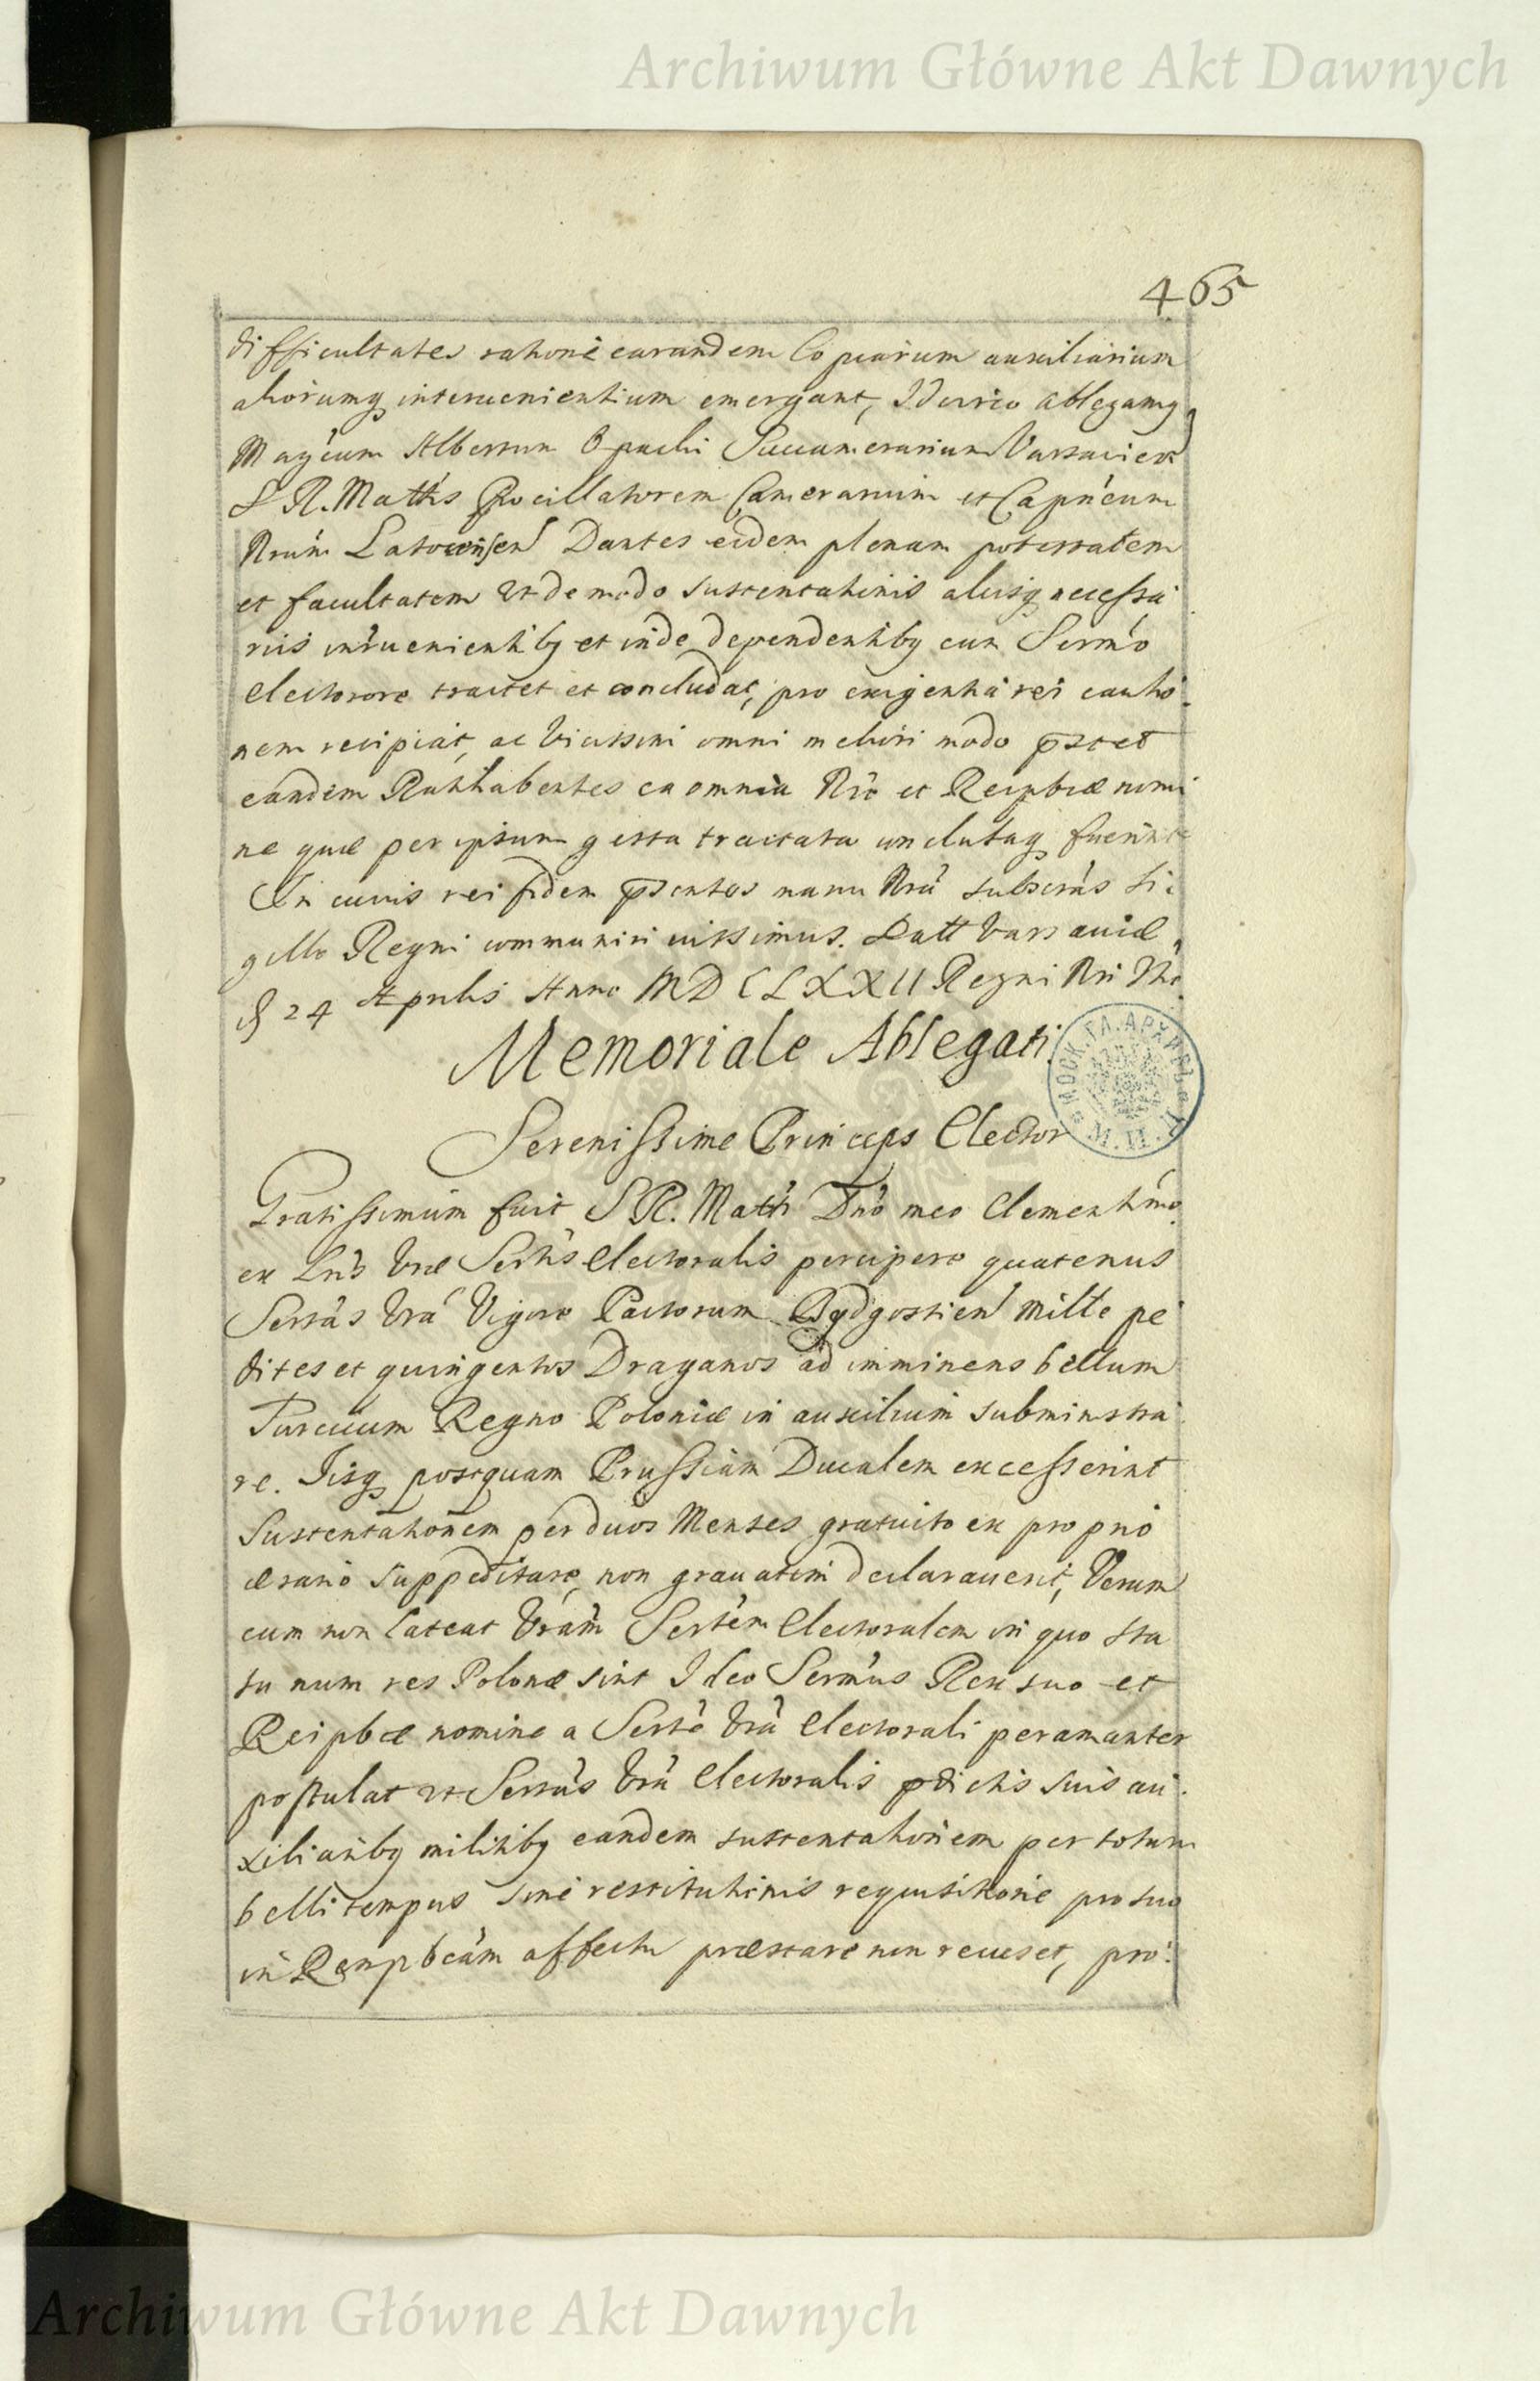 Archiwum Główne Akt Dawnych
465
difficultates rationè earundem Copiarum auxiliarium
aliorumq intervenientium emergant, Idcirco ablegamq
Magcum Albertum Opacki Succamerarium Varsavien
S R. Mattis Pocillatorem Camerarium et Capneum
Nrum Latovicen Dantes eidem plenam potestatem
et facultatem ut de modo sustentationis aliisq necessa
riis intruenientibq et inde dependentibq cum Sermo
Electorore tractet et concludat, pro exigentia rei cautio
nem recipiat, ac vicissim omni meliori modo pstet
eandem Ratihabentes ea omnia Nro et Reipbcæ nomi
ne quæ per ipsum gesta tractata conclutaq fuerint
In cuius rei fidem psentes manu Nra subscras Si
gillo Regni communiri iussimus. Datt Varsaviæ
D 24 Aprilis Anno MDCLXXII Regni Nri 3tio
Memoriale Ablegati
МОСК. ГЛ. АРХИВЪ
М. И. Д.
Serenissime Princeps Elector
Gratissimum fuit S R. Matti Dno meo Clementimo
ex Lris Vræ Sertis Electoralis percipere quatenus
Serras Vra Vigore Pactorum Bydgostien mille pe
dites et quingentos Draganos ad imminens bellum
Turcicum Regno Poloniæ in auxilium subministra
re. Iisq postquam Prussiam Ducalem excesserint
Sustentationem per duos Menses gratuito ex proprio
ærario suppeditare, non gravatim declaraverit, Verum
cum non lateat Vram Sertem Electoralem in quo sta
tu num res Polonæ sint Ideo Sermus Rex suo et
Reipbcæ nomine a Serte Vra Electorali peramanter
postulat ut Serras Vra Electoralis pdictis suis au
xiliaribq militibq eandem sustentationem per totum
belli tempus sine restitutionis requisitione pro suo
in Rempbcam affectu præstare non recuset, pro
Archiwum Główne Akt Dawnych